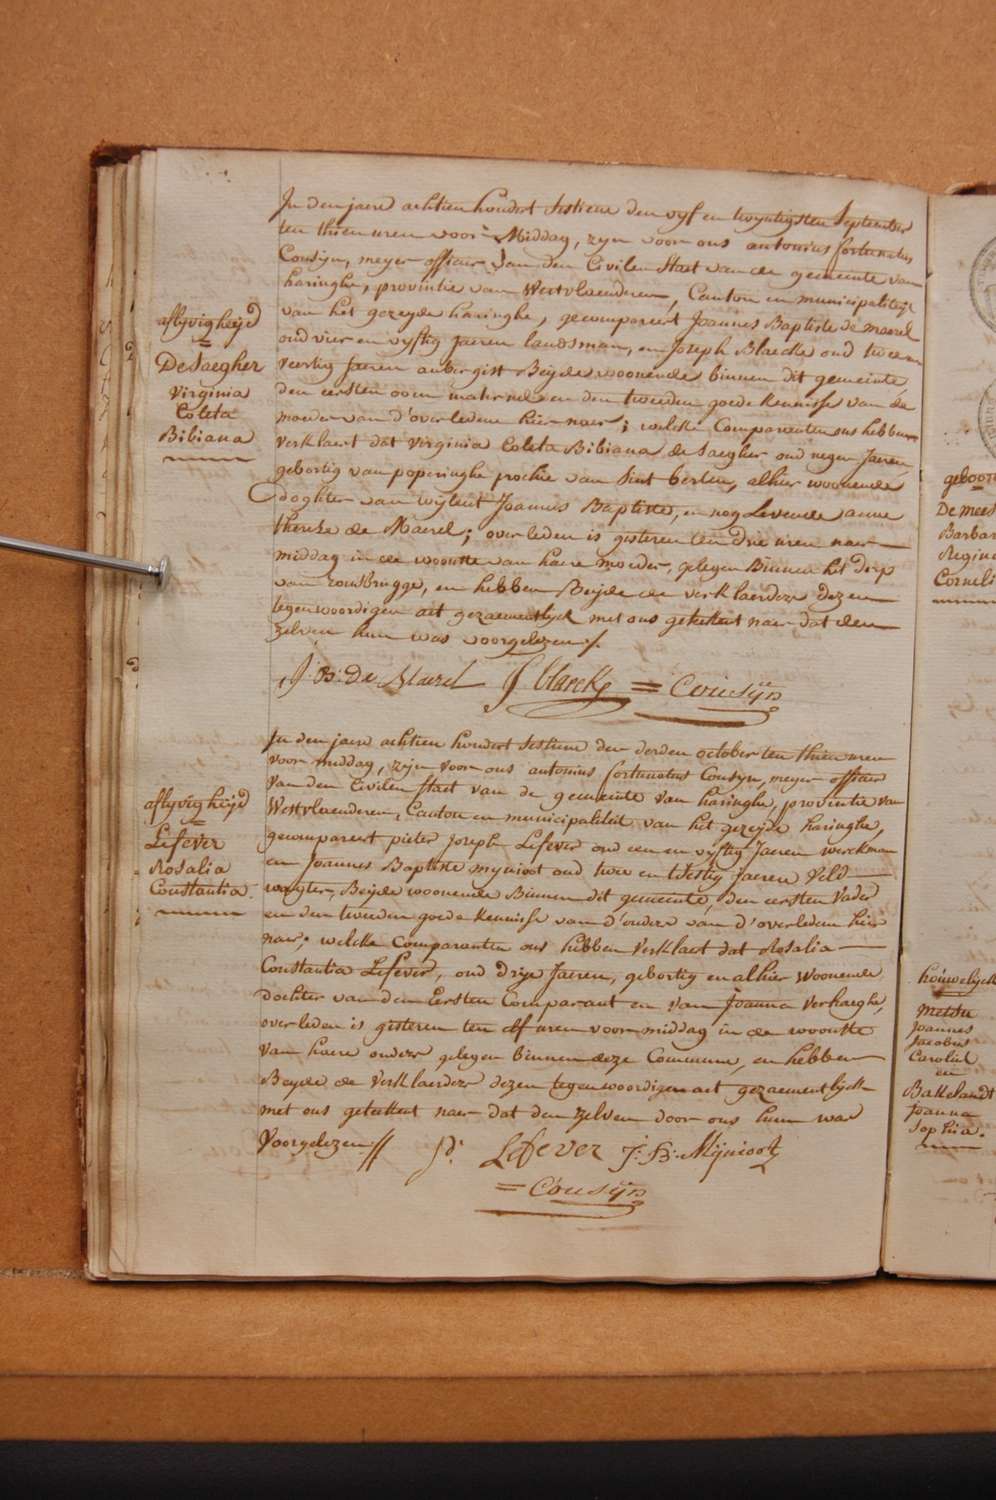 aflyvigheijd
De Saegher
Virginia
Coleta
Bibiana
In den jaere achtien hondert sestiene den vyf en twyntigsten September
ten thien uren voor Middag, zyn voor ons antonius fortunatus
Cousyn, meyer officier van den Civilen Staet van de gemeente van
haringhe, provintie van Westvlaenderen, Canton en municipaliteijt
van het gezeyde haringhe, gecompareert Joannes Baptiste de Maerel
oud vier en vyftig Jaeren landsman, en Joseph Blaecke oud twee en
veertig Jaeren aubergist Beyde woonende binnen dit gemeinte,
den eersten oom maternel en den tweeden goede kennisse van de
moeder van d'overledene hier naer; welcke Comparanten ons hebben
verklaert dat Virginia Coleta Bibiana de Saegher oud negen Jaeren,
gebortig van poperinghe prochie van Sint bertens, alhier woonende
doghter van wylent Joannes Baptiste, en nog Levende anne
therese de Maerel; overleden is gisteren ten drie uren naer
middag in de woonste van haere moeder, gelegen Binnen het dorp
van rousbrugge, en hebben Beyde de verklaerders dezen
tegenwoordigen act gezaementlyck met ons geteekent naer dat den
zelven hun was voorgelezen /.
J: B: De Maerel J blaecke = Cousijn
aflyvigheijd
Lefever
Rosalia
Constantia
In den jaere achtien hondert sestiene den derden october ten thien uren
voor middag, zijn voor ons antonius fortunatus Cousyn, meyer officier
van den Civilen Staet van de gemeente van haringhe, provintie van
Westvlaenderen, Canton en municipaliteit van het gezeyde haringhe,
gecompareert pieter joseph Lefever oud een en vyftig Jaeren werckman
en Joannes Baptiste mynioot oud twee en tsestig Jaeren Veld
wagter, Beyde woonende Binnen dit gemeente, den eersten Vader
en den tweeden goede kennisse van d'ouders van d'overledene hier
naer; welcke Comparanten ons hebben Verklaert dat Rosalia
Constantia Lefever, oud drye Jaeren, gebortig en alhier woonende
dochter van den Eersten Comparant en van Joanna Verhaeghe,
overleden is gisteren ten elf uren voormiddag in de woonste
van haere ouders gelegen binnen deze Commune, en hebben
Beyde de Verklaerders dezen tegenwoordigen act gezaementlyck
met ons geteekent naer dat den zelven door ons hun was
Voorgelezen //
P. Lefever J: B: Mijnioot
= Cousijn
geboort
De mees
Barbar
Regine
Corneli
houwelyck
Joannes
Jacobus
Carolus
en
Bakelandt
joanna
Sophia.